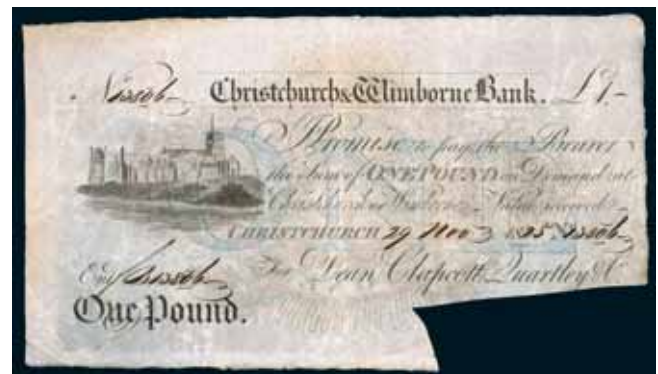 Christchurch & Wimborne Bank. £1,-
I Promise to pay the Bearer
the Sum of ONE POUND on Demand at
Christchurch or Wimborne Value received
CHRISTCHURCH 29 Nov 1825
For Dean, Clapcott, Quartley & Co
One Pound.